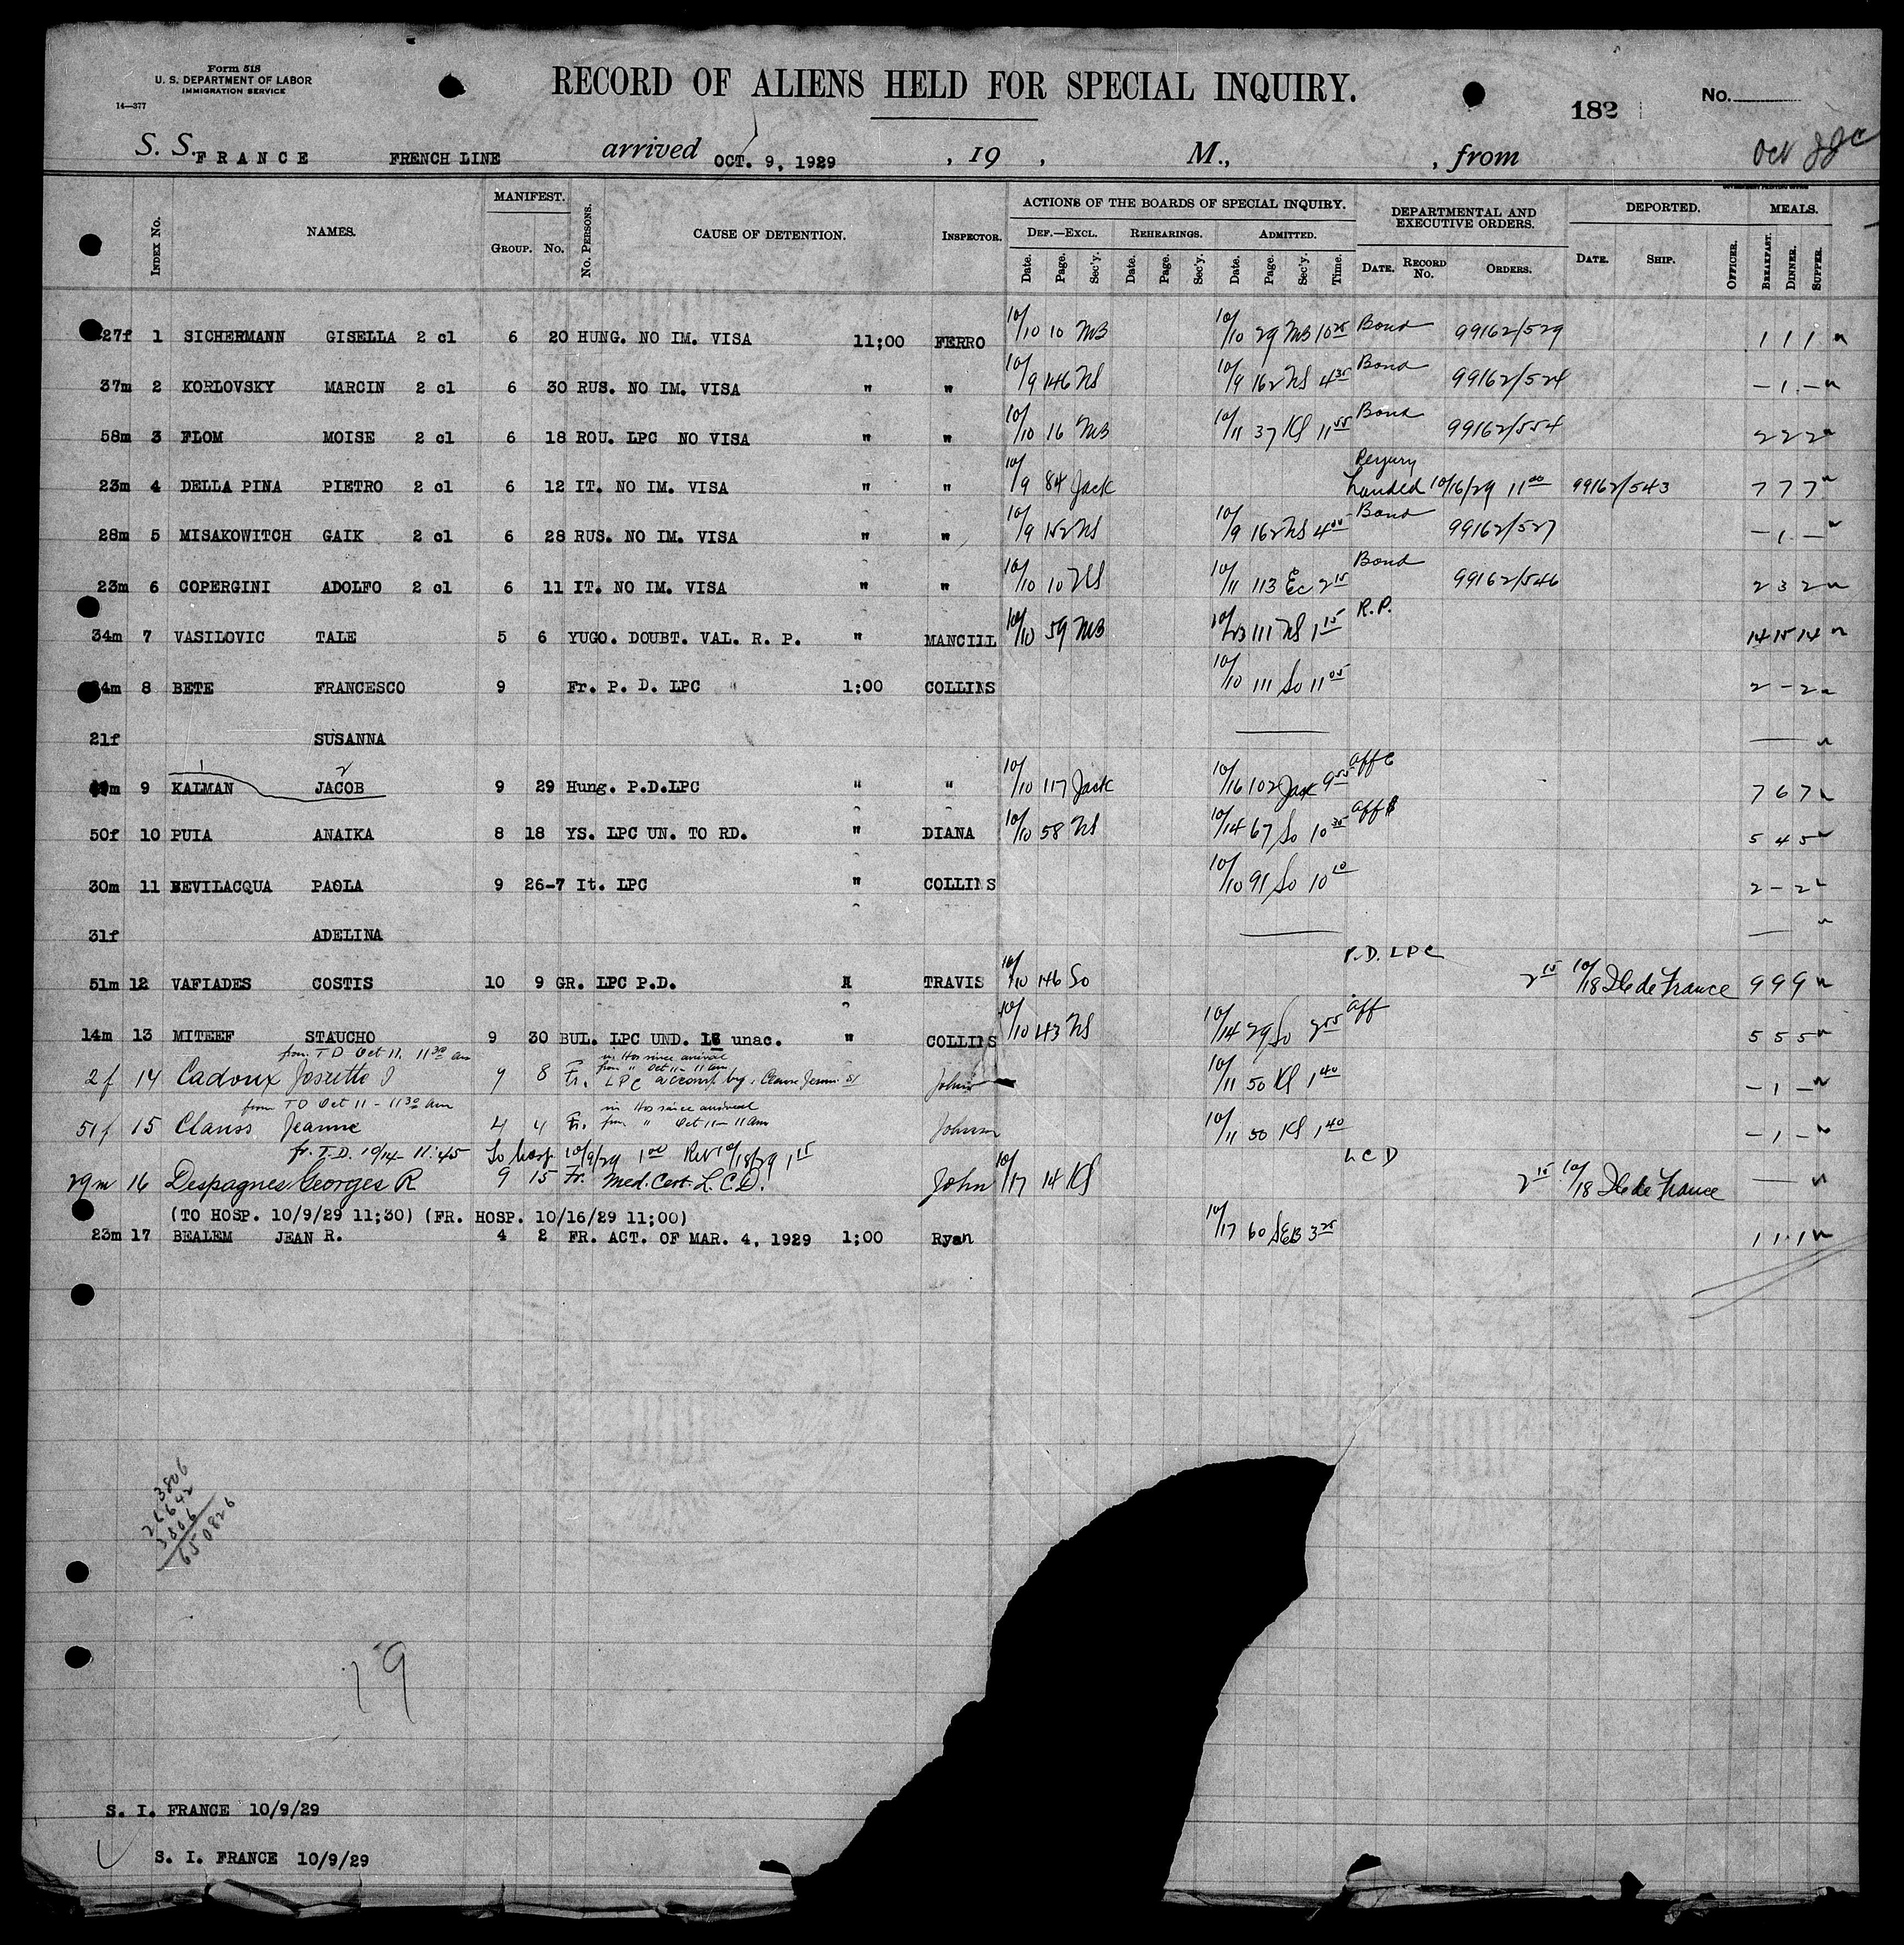 Form 518
U. S. DEPARTMENT OF LABOR
IMMIGRATION SERVICE
14—377
RECORD OF ALIENS HELD FOR SPECIAL INQUIRY.
182
No.
S. S. FRANCE FRENCH LINE arrived OCT. 9, 1929 , 19 , M., , from
Oct
GOVERNMENT PRINTING OFFICE
INDEX No. NAMES. MANIFEST. GROUP. No. No. PERSONS. CAUSE OF DETENTION. INSPECTOR. ACTIONS OF THE BOARDS OF SPECIAL INQUIRY. DEPARTMENTAL AND EXECUTIVE ORDERS. DEPORTED. MEALS.
DEF.—EXCL. REHEARINGS. ADMITTED.
Date. Page. Sec'y. Date. Page. Sec'y. Date. Page. Sec'y. Time. DATE. RECORD No. ORDERS. DATE. SHIP. OFFICER. BREAKFAST. DINNER. SUPPER.
27f 1 SICHERMANN GISELLA 2 cl 6 20 HUNG. NO IM. VISA 11;00 FERRO 10/10 10 MB 10/10 29 MB 10 25 Bond 99162/529 1 1 1
37m 2 KORLOVSKY MARCIN 2 cl 6 30 RUS. NO IM. VISA " " 10/9 146 NS 10/9 162 NS 4 35 Bond 99162/524 – 1 –
58m 3 FLOM MOISE 2 cl 6 18 ROU. LPC NO VISA " " 10/10 16 MB 10/11 37 KS 11 55 Bond 99162/554 2 2 2
23m 4 DELLA PINA PIETRO 2 cl 6 12 IT. NO IM. VISA " " 10/9 84 Jack Landed 10/16/29 11 00 99162/543 7 7 7
28m 5 MISAKOWITCH GAIK 2 cl 6 28 RUS. NO IM. VISA " " 10/9 152 NS 10/9 162 NS 4 00 Bond 99162/527 – 1 –
23m 6 COPERGINI ADOLFO 2 cl 6 11 IT. NO IM. VISA " " 10/10 10 NS 10/11 113 Ec 2 15 Bond 99162/546 2 3 2
34m 7 VASILOVIC TALE 5 6 YUGO. DOUBT. VAL. R. P. " MANCILL 10/10 59 MB 10/23 111 NS 1 15 R.P. 14 15 14
4m 8 BETE FRANCESCO 9 Fr. P. D. LPC 1:00 COLLINS 10/10 111 So 11 05 2 – 2
21f SUSANNA
m 9 KALMAN JACOB 9 29 Hung. P.D.LPC " " 10/10 117 Jack 10/16 102 Jack 9 55 aff 7 6 7
50f 10 PUIA ANAIKA 8 18 YS. LPC UN. TO RD. " DIANA 10/10 58 NS 10/14 67 So 10 35 aff 5 4 5
30m 11 BEVILACQUA PAOLA 9 26-7 It. LPC " COLLINS 10/10 91 So 10 10 2 – 2
31f ADELINA
51m 12 VAFIADES COSTIS 10 9 GR. LPC P.D. TRAVIS 10/10 146 So P.D. LPC 2 15 10/18 Ile de France 9 9 9
14m 13 MITEEF STAUCHO 9 30 BUL. LPC UND. 16 unac. " COLLINS 10/10 43 NS 10/14 29 So 2 55 aff 5 5 5
from T D Oct 11, 11 30 am in Hos since arrival
from " Oct 11 – 11 am
2f 14 Cadoux Josette J 9 8 Fr. LPC accompt by. Johns 10/11 50 KS 1 40 – 1 –
from T D Oct 11 – 11 30 am in Hos since arrival
from " Oct 11 – 11 am
51f 15 Clauss Jeanne 4 4 Fr. Johnson 10/11 50 KS 1 40 – 1 –
fr. T.D. 10/14 – 11:45 To hosp. 10/9/29 1 00 10/18/29 1 15 L C D
29m 16 Despagnes Georges R 9 15 Fr. Med. Cert. L.C.D. John 10/17 14 KS 2 15 10/18 Ile de France
(TO HOSP. 10/9/29 11;30) (FR. HOSP. 10/16/29 11;00)
23m 17 BEALEM JEAN R. 4 2 FR. ACT. OF MAR. 4, 1929 1:00 Ryan 10/17 60 SEB 3 25 1 1 1
3806
26642
3806
650826
19
S. I. FRANCE 10/9/29
S. I. FRANCE 10/9/29